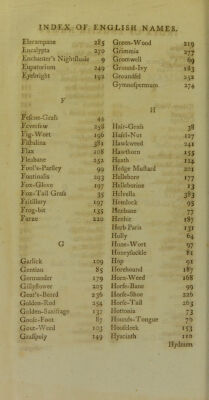 INDEX OF ENGLISH NAMES.
Elecampane 285
Encalypta 270
Enchanter's Nightshade 9
Eupatorium 249
Eyebright 192
F
Fescue-Grass 44
Feverfew 258
Fig-Wort 196
Fistulina 381
Flax 108
Fleabane 252
Fool's-Parsley 99
Fontinalis 293
Fox-Glove 197
Fox-Tail Grass 35
Fritillary 197
Frog-bit 135
Furze 220
G
Garlick 109
Gentian 85
Germander 179
Gillyflower 205
Goat's-Beard 236
Golden-Rod 254
Golden-Saxifrage 137
Goose-Foot 87
Gout-Weed 103
Grasspoly 149
Green-Wood 219
Grimmia 277
Gromwell 69
Ground-Ivy 183
Groundsel 252
Gymnostpermum 274
H
Hair-Grass 38
Hasel-Nut 127
Hawkweed 241
Hawthorn 155
Heath 124
Hedge Mustard 201
Hellebore 177
Helleborine 13
Helvella 383
Hemlock 95
Henbane 77
Henbit 187
Herb Paris 131
Holly 64
Hone-Wort 97
Honeysuckle 81
Hop 91
Horehound 187
Horn-Weed 168
Horse-Bane 99
Horse-Shoe 226
Horse-Tail 263
Hottonia 73
Hounds-Tongue 70
Houseleek 153
Hyacinth 110
Hydnum